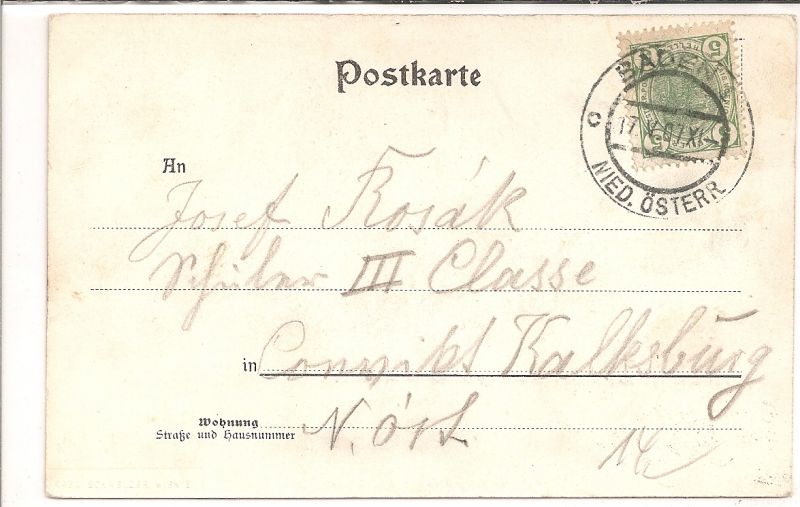 Postkarte
BADEN
C
17. V. 07/XI
NIED. ÖSTERR
5 5
5 5
An
Josef Kosák
Schüler III Classe
in Convikt Kalksburg
Wohnung
Straße und Hausnummer
N. öst
14